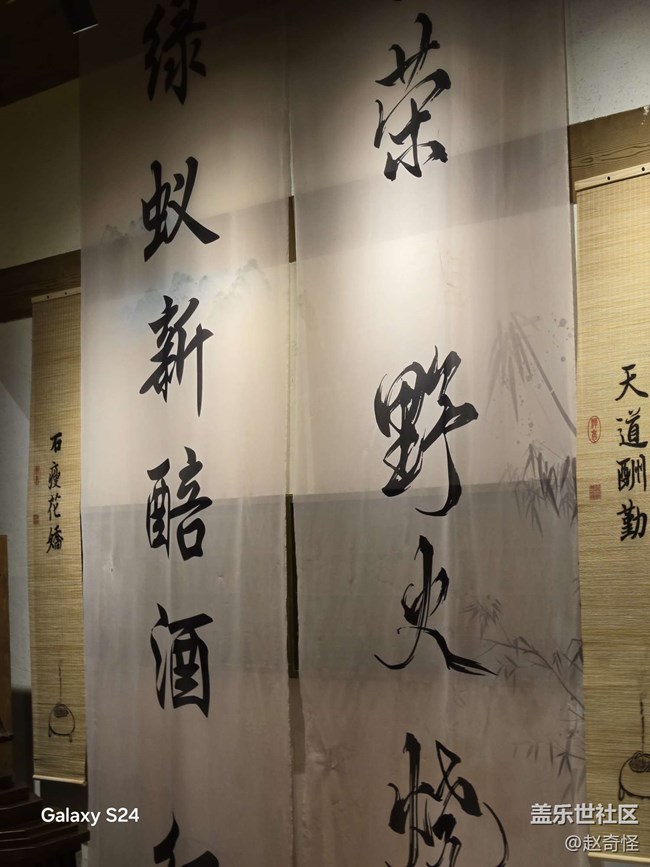 天道酬勤
荣 野火烧
绿蚁新醅酒
石瘦花嬌
Galaxy S24
盖乐世社区
@赵奇怪